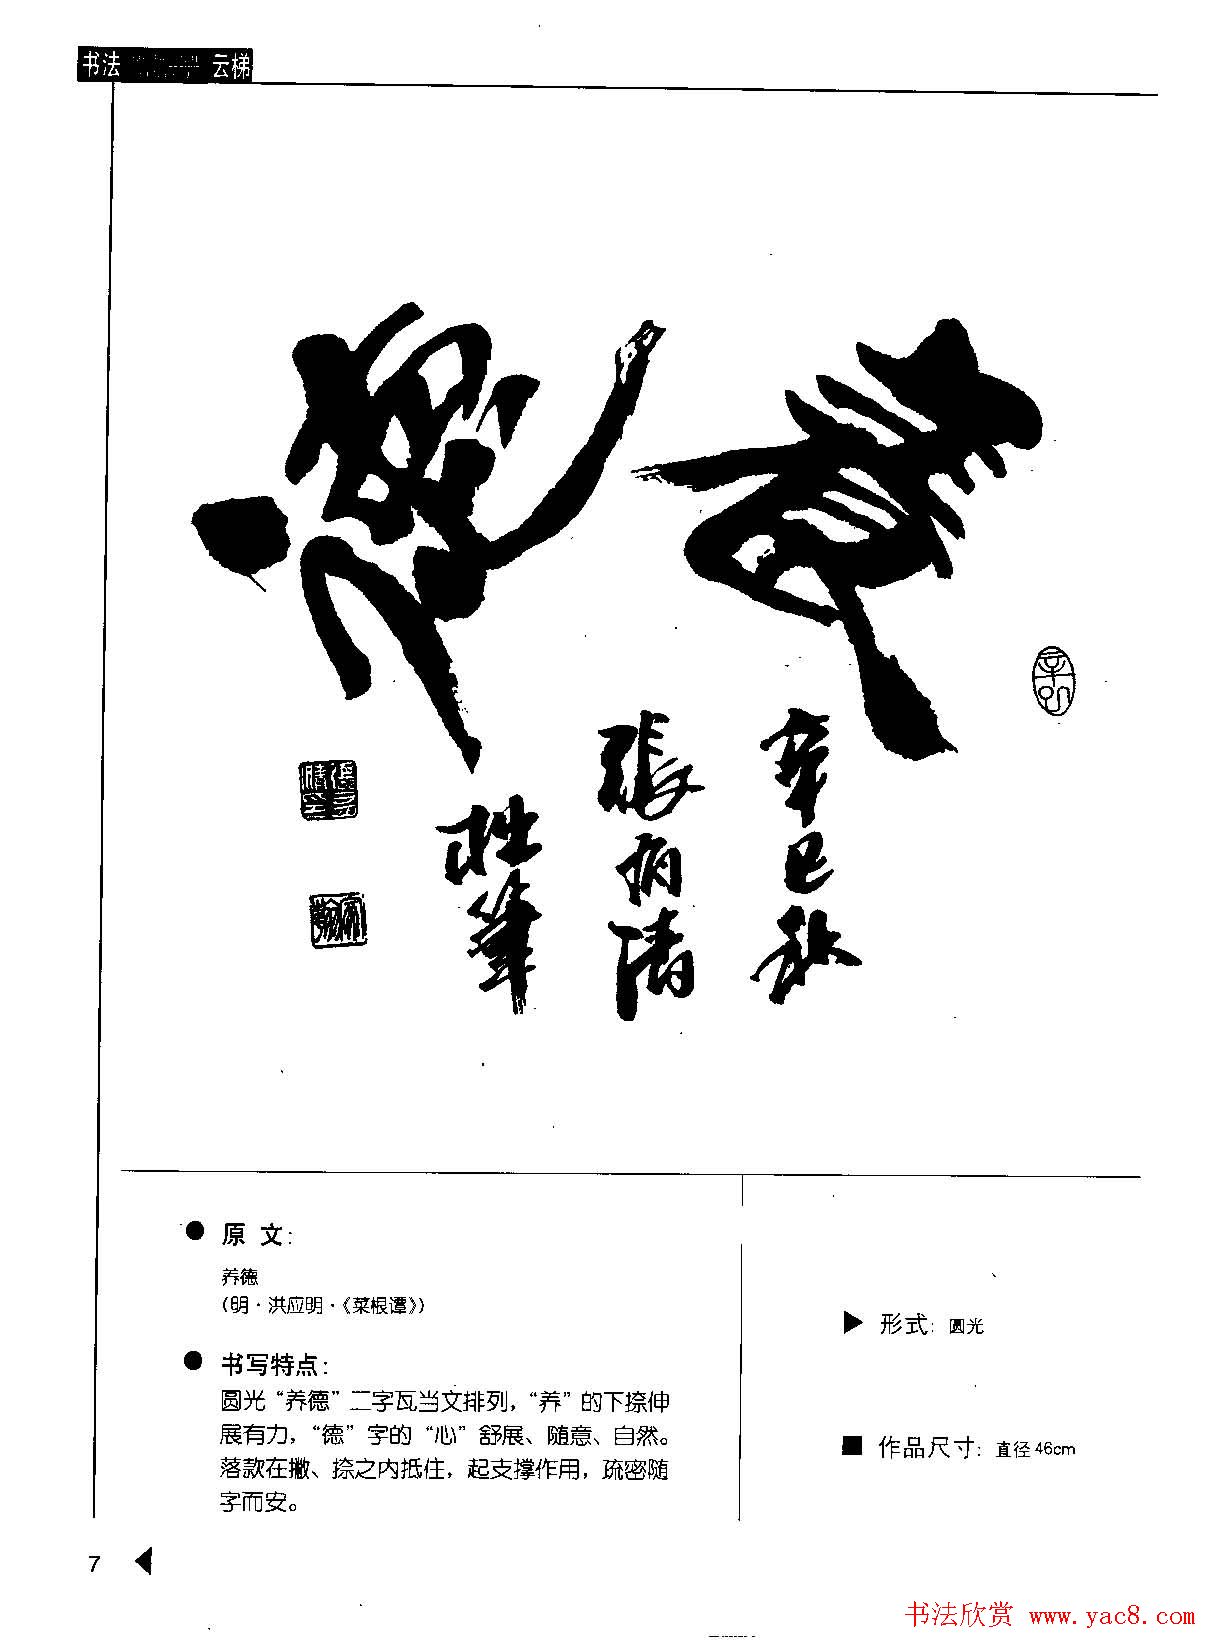 书法 云梯
養
德
辛巳秋
張有清
拙筆
● 原 文：
养德
（明·洪应明·《菜根谭》）
● 书写特点：
圆光“养德”二字瓦当文排列，“养”的下捺伸
展有力，“德”字的“心”舒展、随意、自然。
落款在撇、捺之内抵住，起支撑作用，疏密随
字而安。
▶ 形式：圆光
■ 作品尺寸：直径46cm
7 ◀
书法欣赏 www.yac8.com